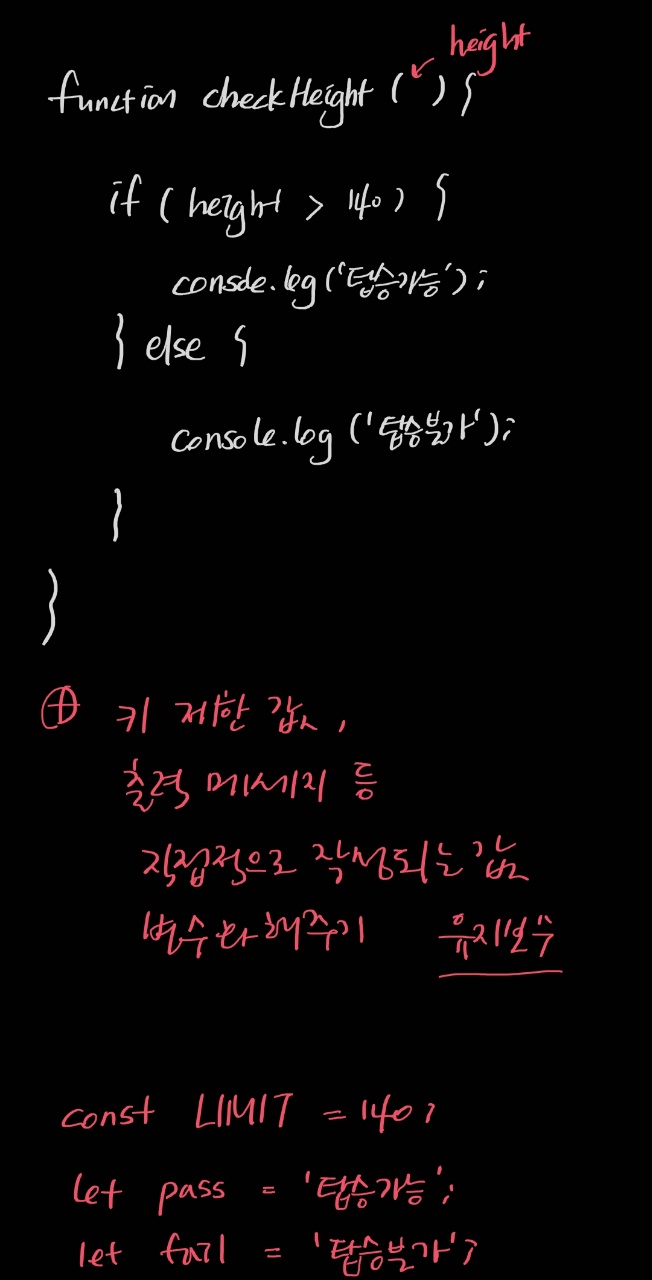 height
function checkHeight ( ) {
if ( height > 140 ) {
console.log('탑승가능');
} else {
console.log ('탑승불가');
}
}
⊕ 키 제한 값,
출력 메세지 등
직접적으로 작성되는 값
변수화해주기 유지보수
const LIMIT = 140;
let pass = '탑승가능';
let fail = '탑승불가';